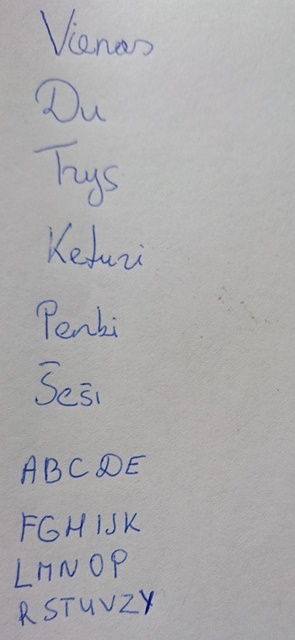 Vienas
Du
Trys
Keturi
Penki
Šeši
ABCDE
FGHIJK
LMNOP
RSTUVZY